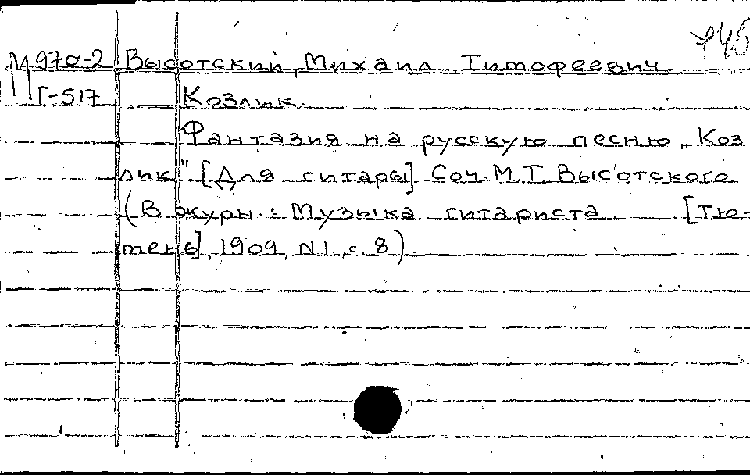 М 970-2 Высотский, Михаил Тимофеевич
Г-517 Козлик.
Фантазия на русскую песню „Коз
лик" [Для гитары] Соч. М.Т. Высотского
(В журн.: Музыка гитариста. [Тю-
мень], 1909, N1, с. 8).